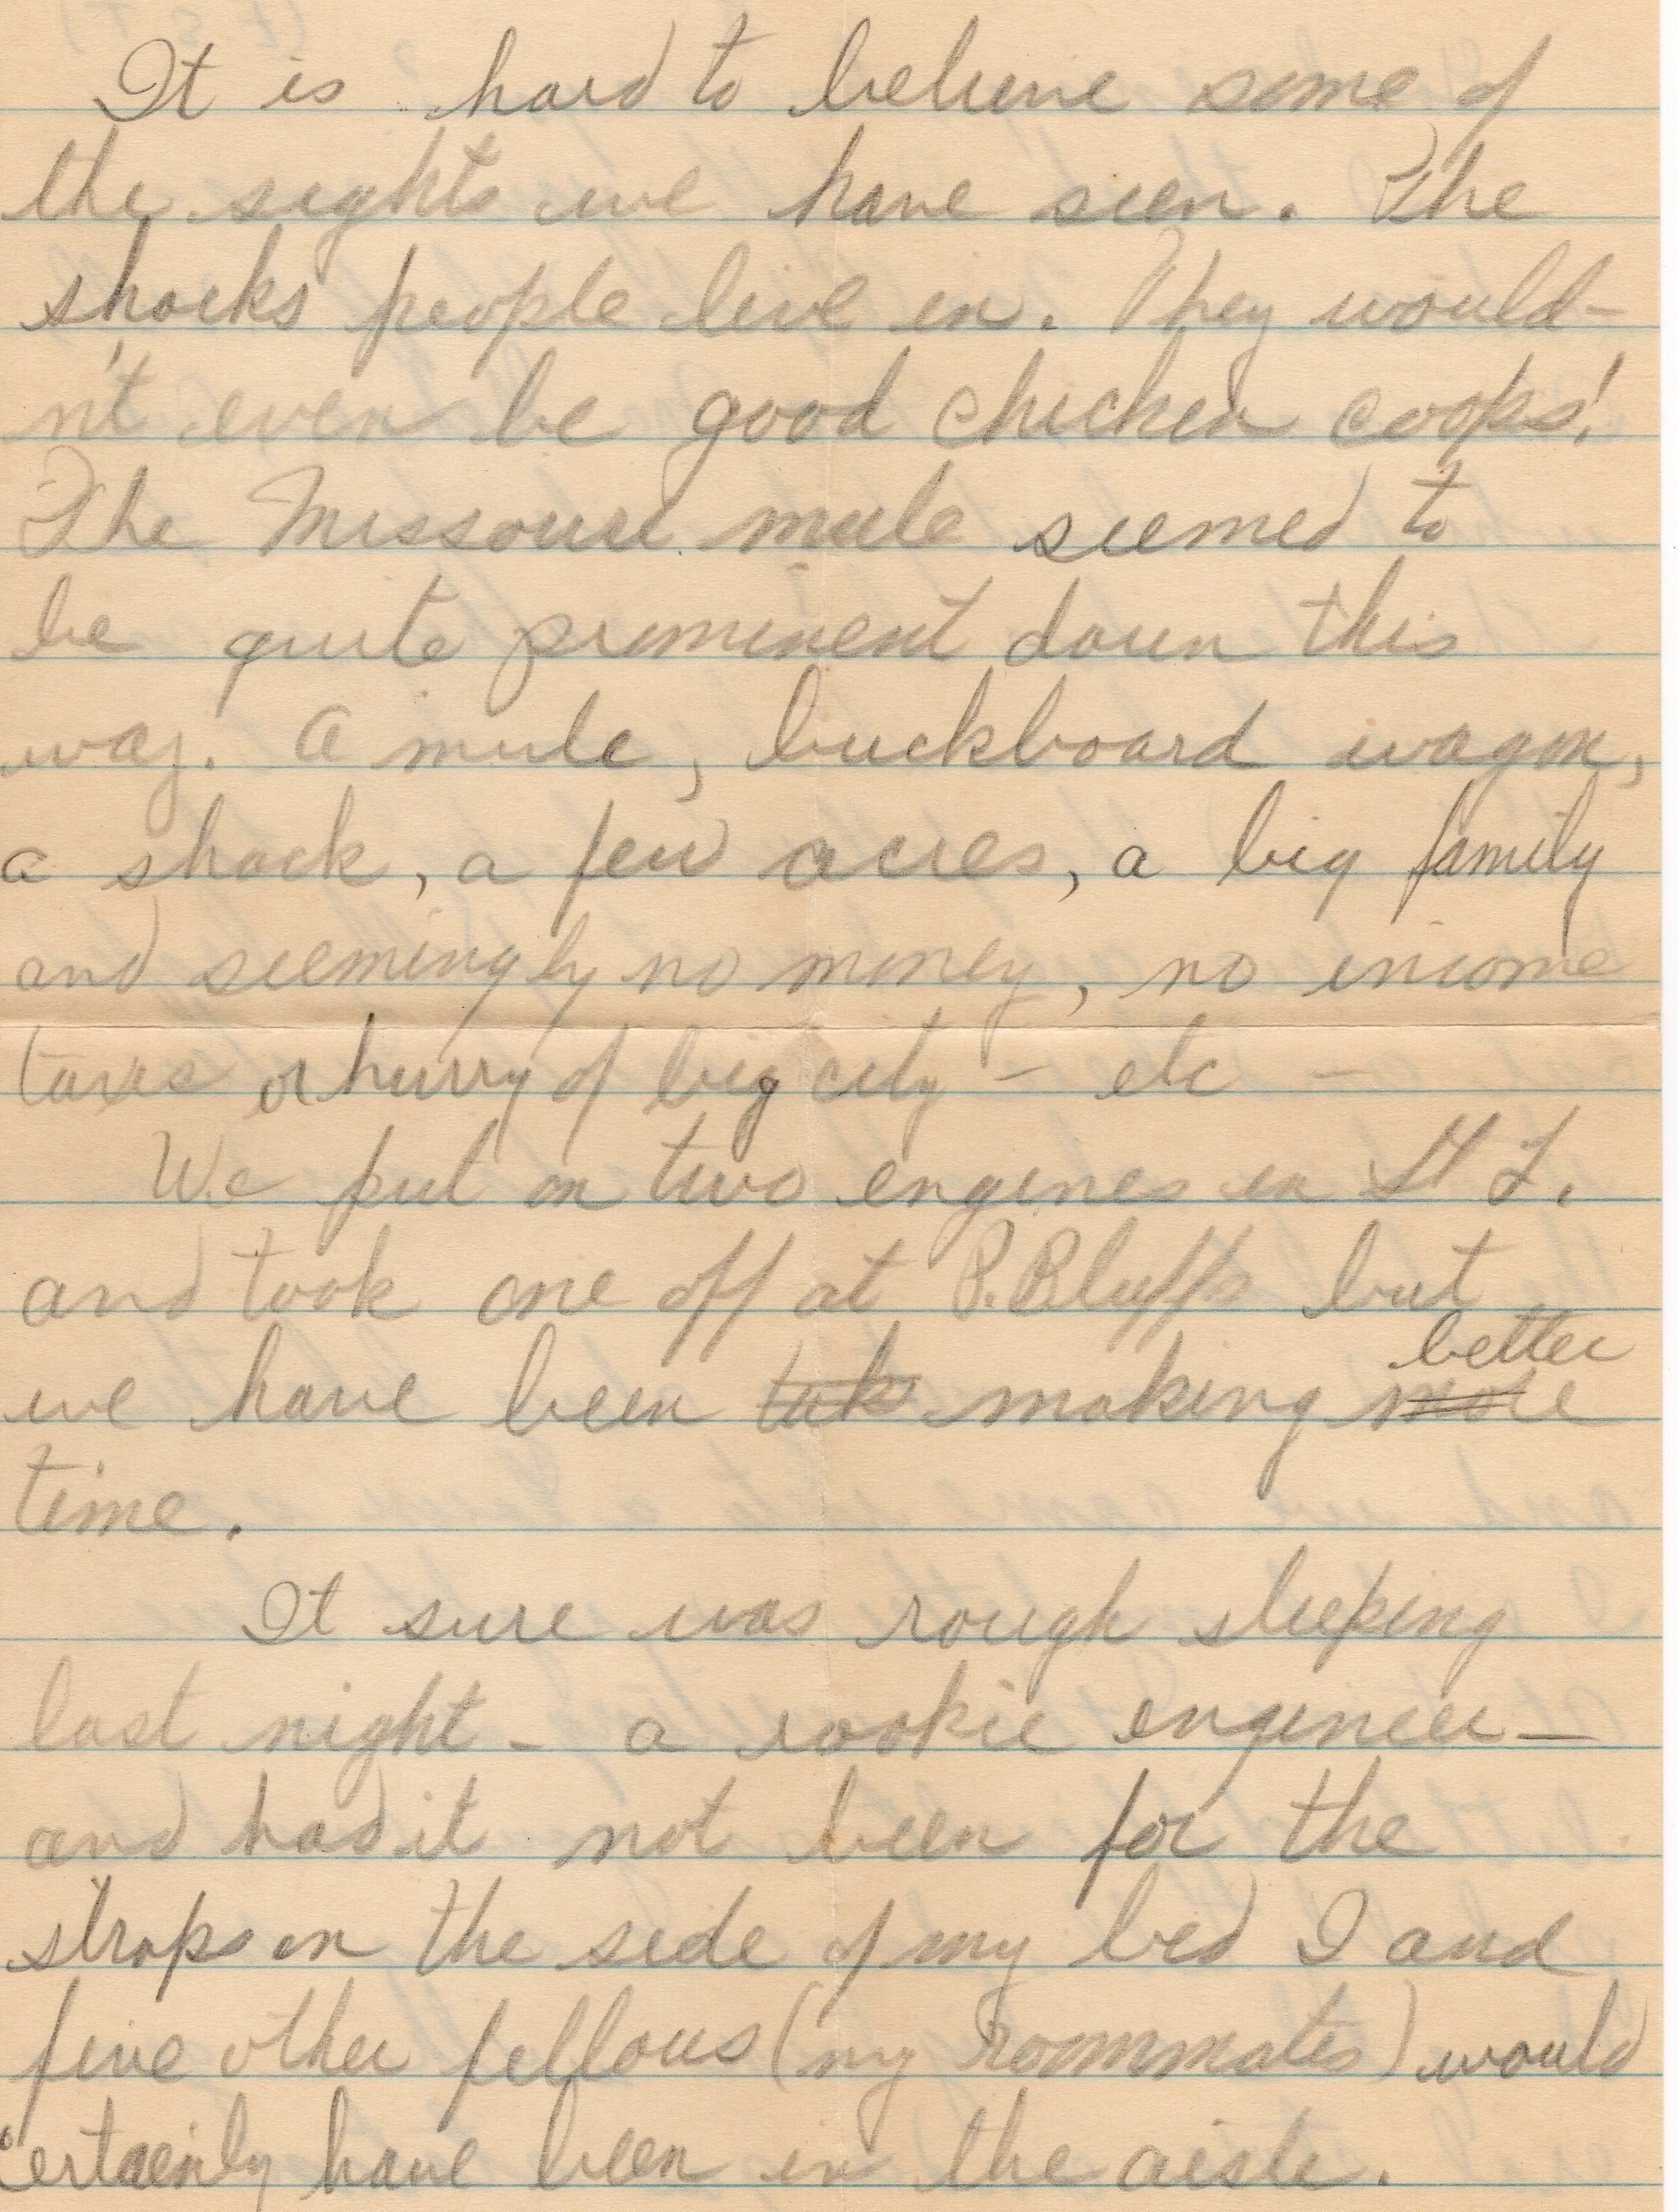 It is hard to believe some of
the sights we have seen. The
shacks people live in. They would-
n't even be good chicken coops!
The Missouri mule seemed to
be quite prominent down this
way. A mule, buckboard wagon,
a shack, a few acres, a big family
and seemingly no money, no income
taxes or hurry of big city - etc -
We put on two engines in St L.
and took one off at P. Bluffs but
better
we have been tak making more
time.
It sure was rough sleeping
last night - a rookie engineer -
and had it not been for the
straps on the side of my bed I and
five other fellows (my roommates) would
certaenly have been in the aisle.